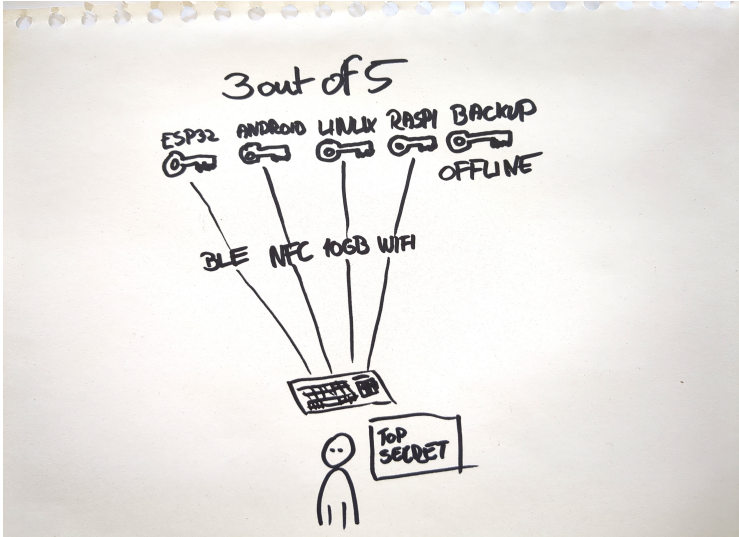 3 out of 5
ESP32 ANDROID LINUX RASPI BACKUP
OFFLINE
BLE NFC 10GB WIFI
TOP
SECRET